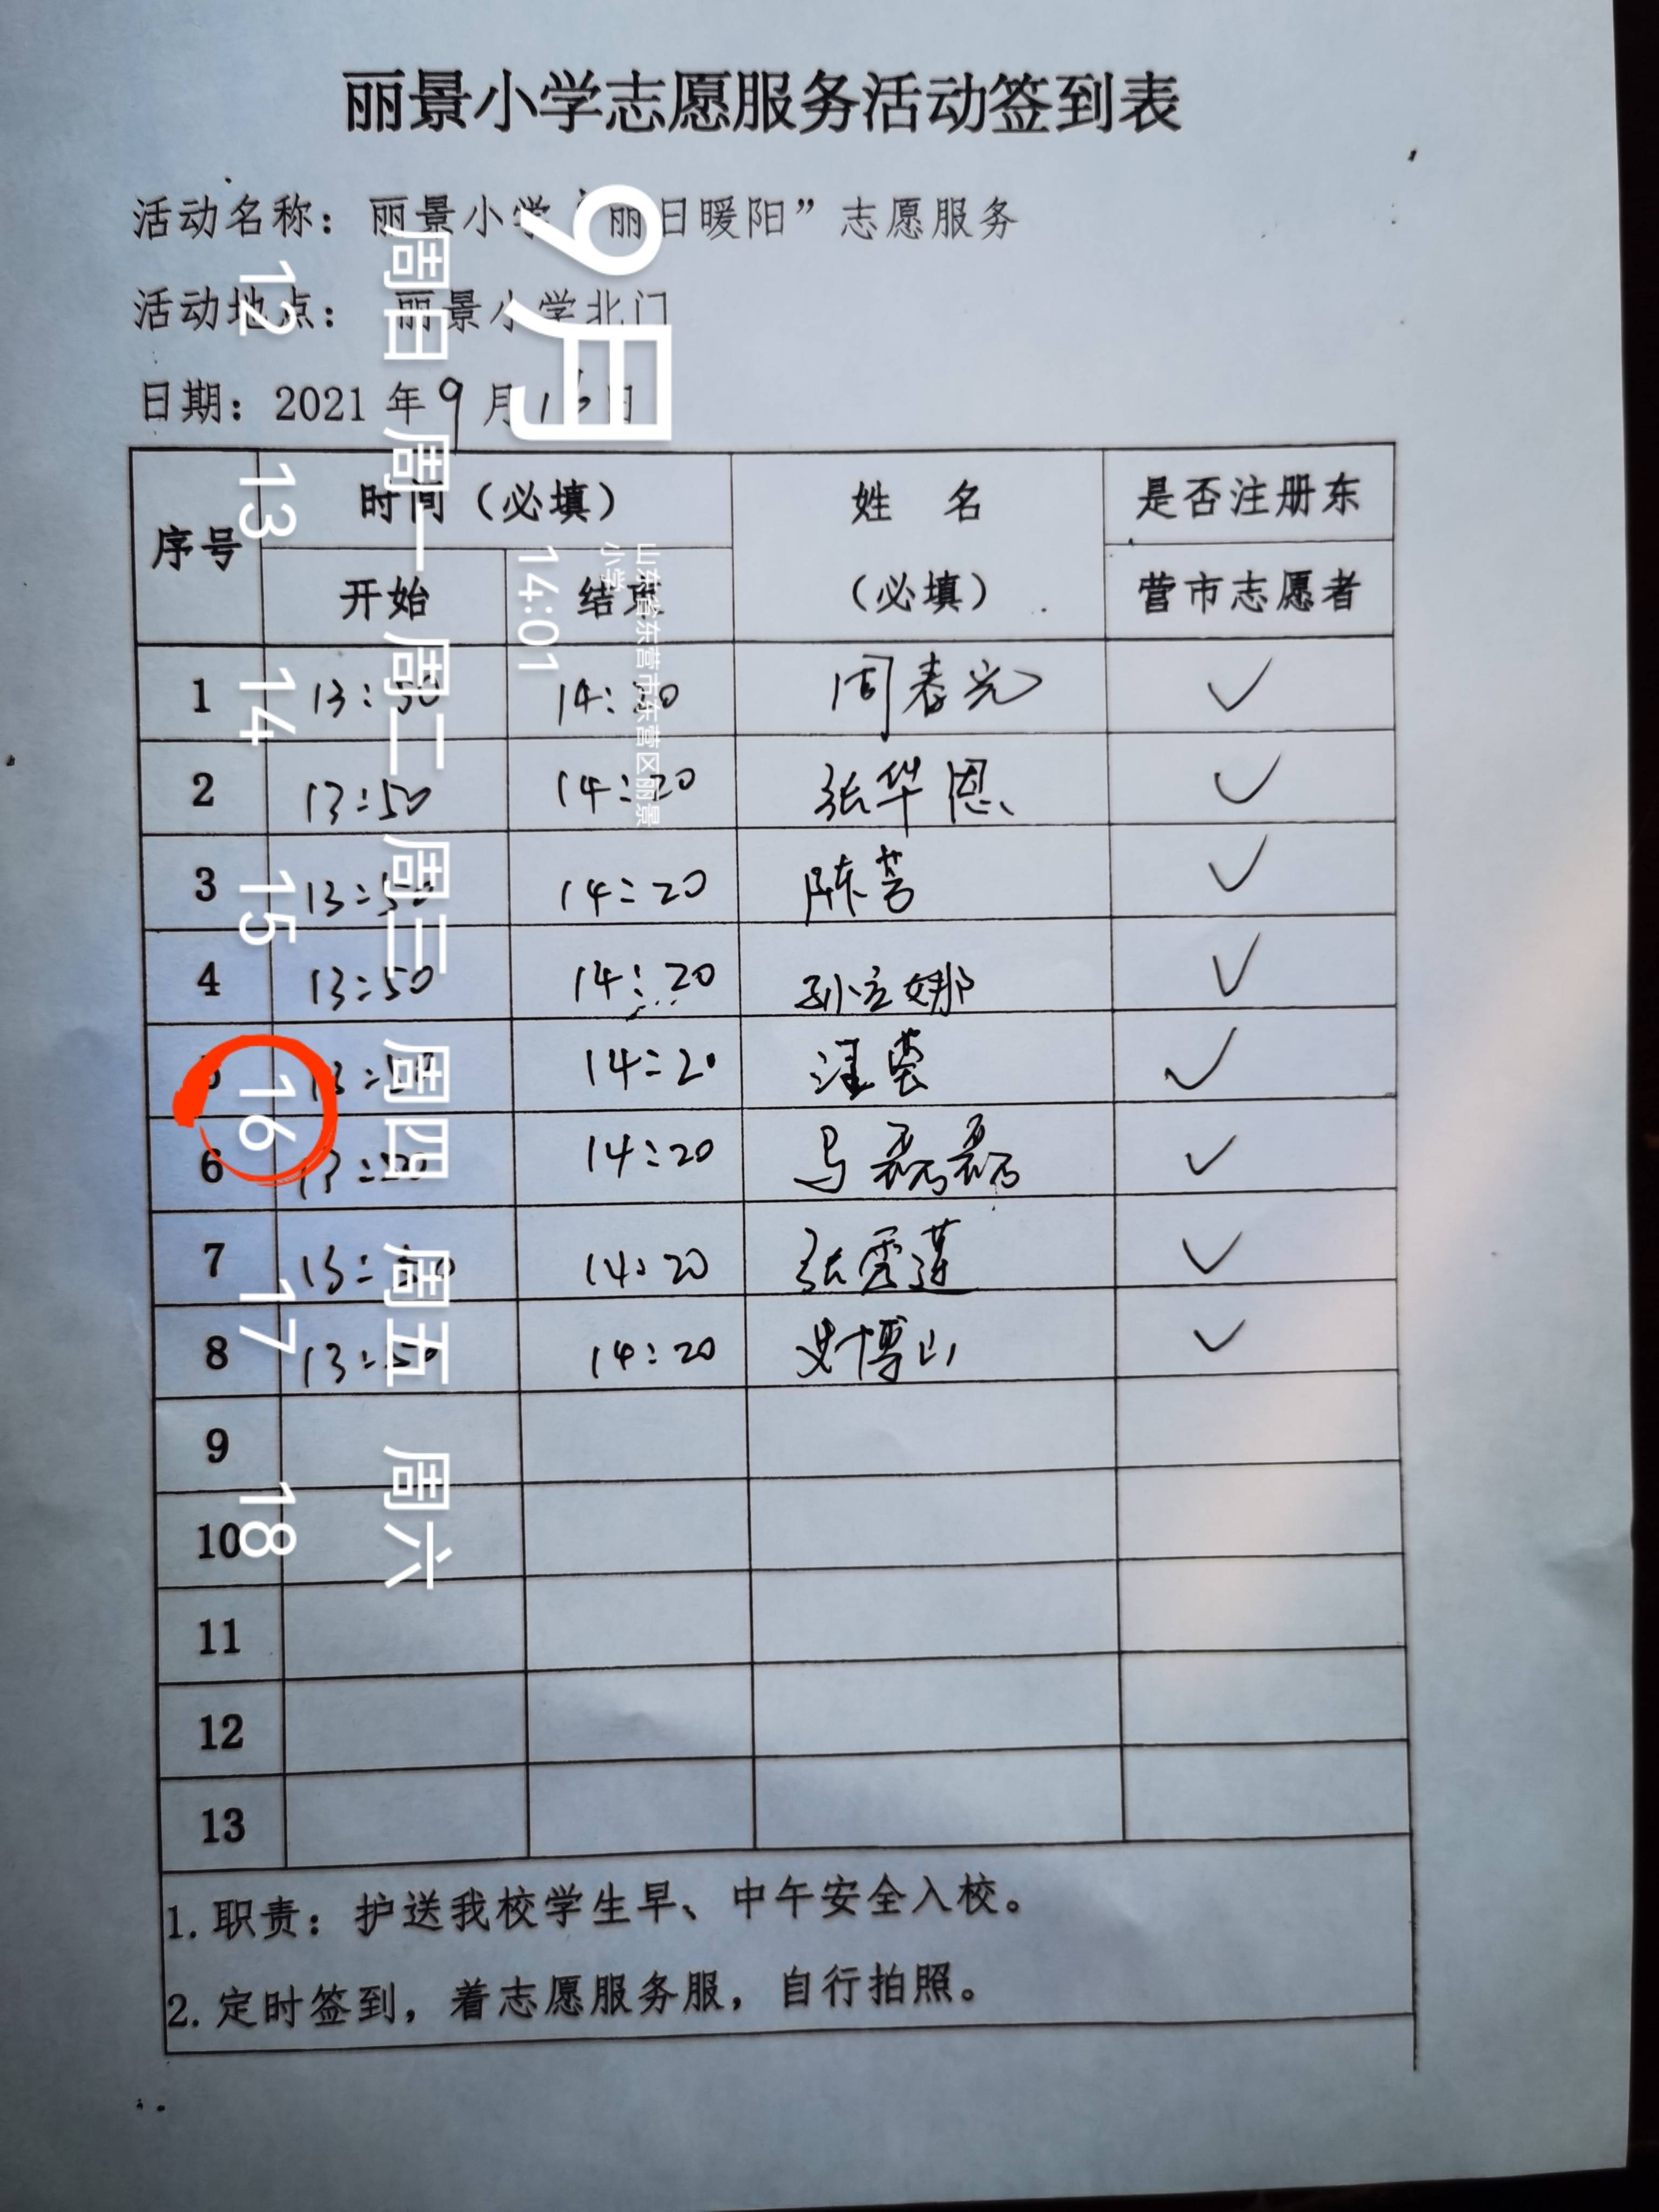 丽景小学志愿服务活动签到表
活动名称：丽景小学“丽日暖阳”志愿服务
活动地点：丽景小学北门
日期：2021年9月16日
序号 时间（必填） 姓 名 是否注册东
开始 结束 （必填） 营市志愿者
1 13:50 14:20 周春光 ✓
2 13:50 14:20 张华恩 ✓
3 13:50 14:20 陈芳 ✓
4 13:50 14:20 孙立娜 ✓
5 13:50 14:20 ✓
6 13:50 14:20 马磊磊 ✓
7 13:50 14:20 张秀莲 ✓
8 13:50 14:20 史博山 ✓
9
10
11
12
13
1.职责：护送我校学生早、中午安全入校。
2.定时签到，着志愿服务服，自行拍照。
9月
周日 周一 周二 周三 周四 周五 周六
12 13 14 15 16 17 18
14:01
山东省东营市东营区丽景
小学